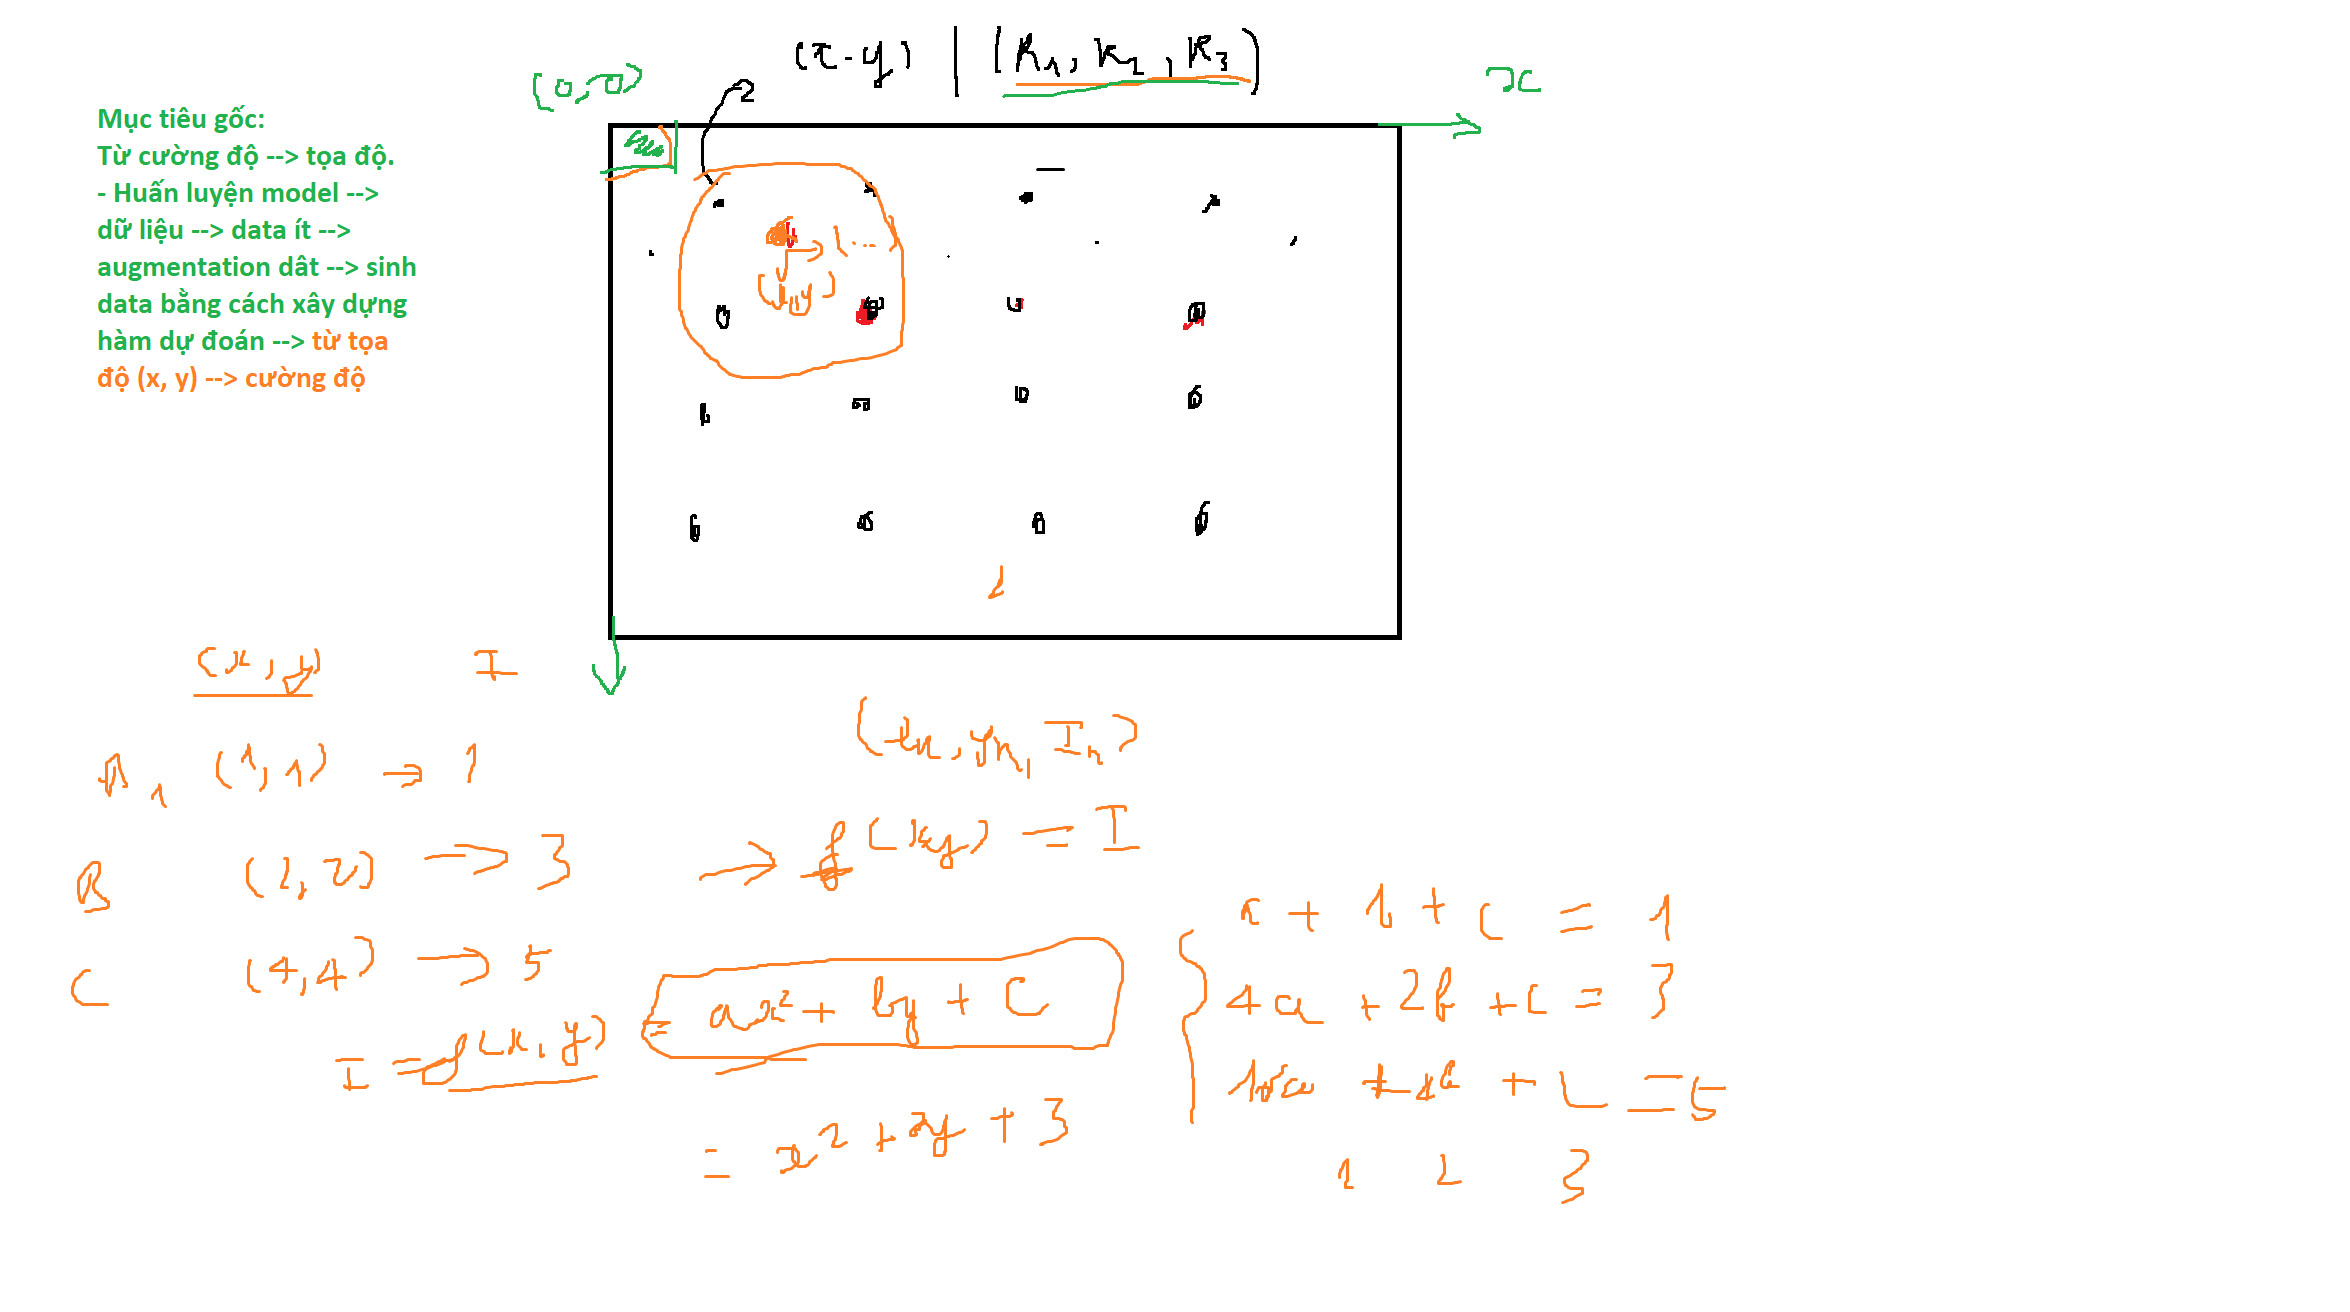 (x-y) | (R₁, R₂, R₃)
(0,0)
x
2
Mục tiêu gốc:
Từ cường độ --> tọa độ.
- Huấn luyện model -->
dữ liệu --> data ít -->
augmentation dât --> sinh
data bằng cách xây dựng
hàm dự đoán --> từ tọa
độ (x, y) --> cường độ
(...)
(x, y)
(x, y) I
(xn, yn, In)
A1 (1,1) → 1
B (2,2) → 3
→ f(x,y) = I
C (4,4) → 5
I = f(x, y) = ax² + by + C
= x² + 2y + 3
a + b + c = 1
4a + 2b + c = 3
+ c = 5
1 2 3